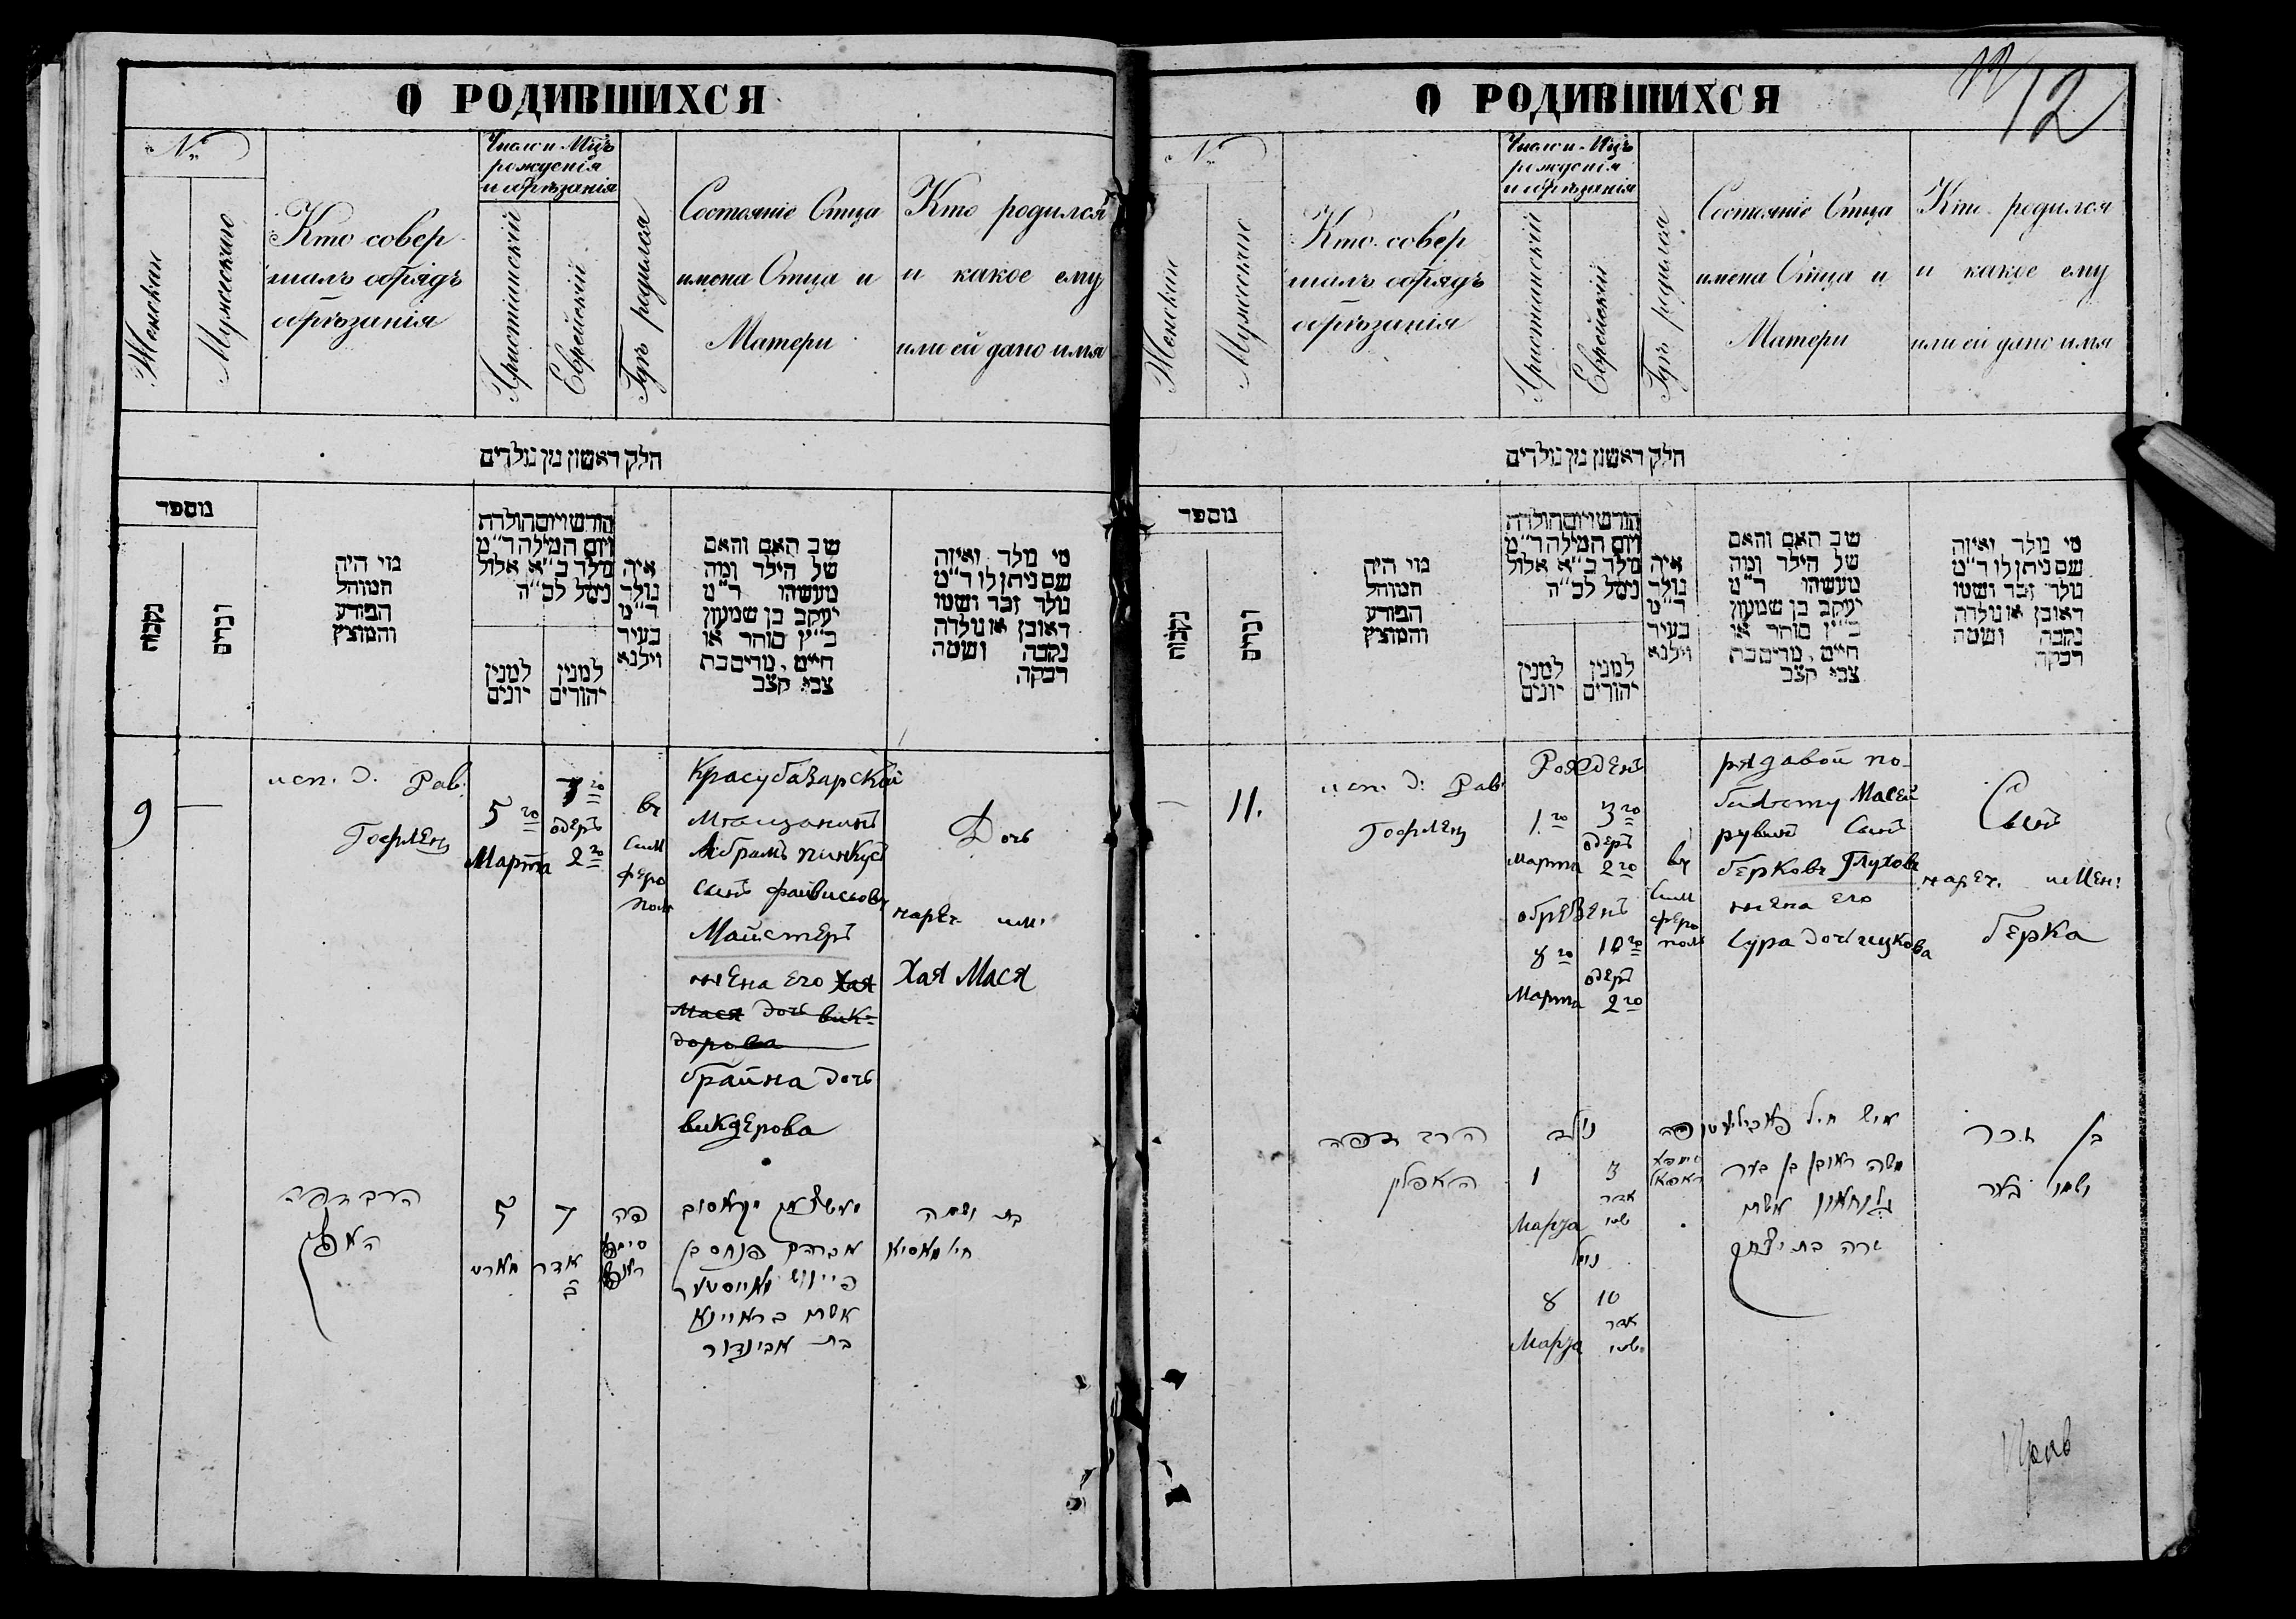 О РОДИВШИХСЯ
№
Женскій
Мужескаго
Кто совер
шалъ обрядъ
обрѣзанія
Число и Мцъ
рожденія
и обрѣзанія
Христіанскій
Еврейскій
Гдѣ родился
Состояніе Отца
имена Отца и
Матери
Кто родился
и какое ему
или ей дано имя
חלק ראשון מן נולדים
מספר
נקבות
זכרים
מי היה
המוהל
הפורע
והמוצץ
חודש ויום הולדת
ויום המילה ד״מ
נולד ב״א אלול
נימל לכ״ה
למנין
יונים
למנין
יהודים
איה
נולד
ד״מ
בעיר
ווילנא
שם האב והאם
של הילד ומה
מעשהו ד״מ
יעקב בן שמעון
כ״ץ סוחר או
חיים, מרים בת
צבי קצב
מי נולד ואיזה
שם ניתן לו ד״מ
נולד זכר ושמו
ראובן או נולדה
נקבה ושמה
רבקה
9
—
исп. д. Рав:
Гофленъ
5го
Марта
7го
адеръ
2го
въ
Сим
феро
поль
Красубазарской
Мѣщанинъ
Абрамъ Пинкусъ
сынъ файвишовъ
Майстеръ
жена его Хая
Мася дочь вик=
дорова
брайна дочь
викдерова
Дочь
нареч. им.
Хая Мася
הרב
האפלין
5
מארט
7
אדר
ב
פה
סימפע
אברהם פנחס בן
פייוויש מאייסטער
אשתו בראיינא
בת אביגדור
בת ושמה
חי׳ מאסיא
О РОДИВШИХСЯ
12
№
Женскій
Мужескаго
Кто совер
шалъ обрядъ
обрѣзанія
Число и Мцъ
рожденія
и обрѣзанія
Христіанскій
Еврейскій
Гдѣ родился
Состояніе Отца
имена Отца и
Матери
Кто родился
и какое ему
или ей дано имя
חלק ראשון מן נולדים
מספר
נקבות
זכרים
מי היה
המוהל
הפורע
והמוצץ
חודש ויום הולדת
ויום המילה ד״מ
נולד ב״א אלול
נימל לכ״ה
למנין
יונים
למנין
יהודים
איה
נולד
ד״מ
בעיר
ווילנא
שם האב והאם
של הילד ומה
מעשהו ד״מ
יעקב בן שמעון
כ״ץ סוחר או
חיים, מרים בת
צבי קצב
מי נולד ואיזה
שם ניתן לו ד״מ
נולד זכר ושמו
ראובן או נולדה
נקבה ושמה
רבקה
—
11.
исп. д: Рав:
Гофленъ
Рожденъ
1го
Марта
3го
адеръ
2го
обрезенъ
8го
Марта
10го
адеръ
2го
въ
Сим
феро
поль
рядавой по
билету Масей
рувинъ Сынъ
берковъ Глуховъ
жена его
Сура дочь ицкова
Сынъ
нареч. имен:
берка
הרב
האפלין
נולד
1
3
אדר
שני
Марта
נימול
8
10
אדר
שני
Марта
פה
איש חיל
משה ראובן בן בער
אשתו
שרה בת יצחק
בן זכר
ושמו בער